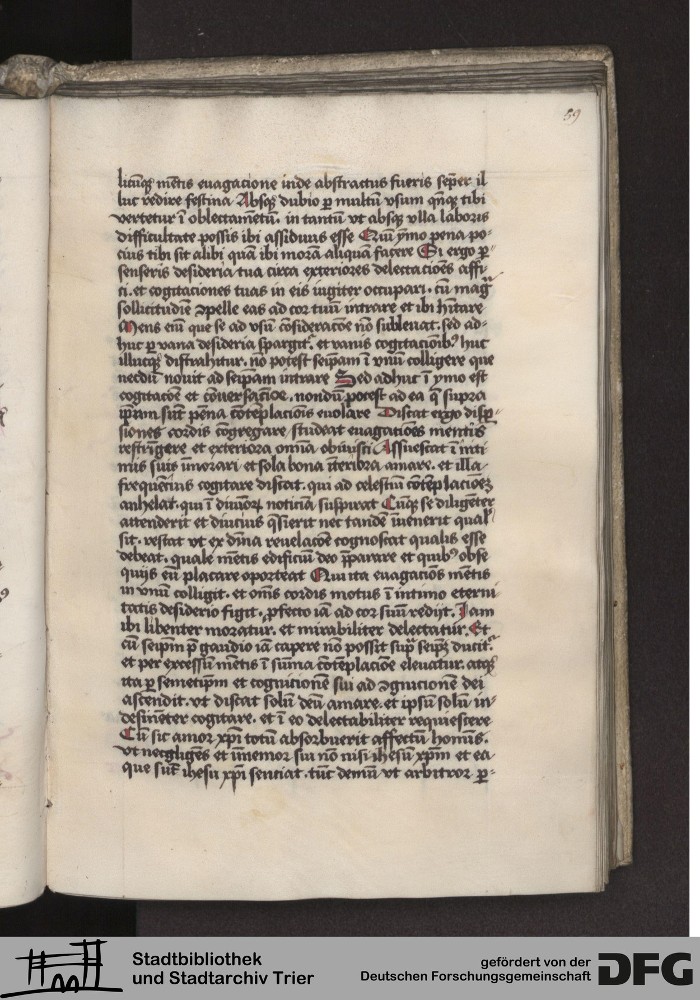 59
licūqꝫ mētis euagacione inde abstractus fueris semper il
luc redire festina Absqꝫ dubio ꝑ multū vsum qn̄qꝫ tibi
vertetur ī oblectametū. in tantū vt absqꝫ vlla laboris
difficultate possis ibi assiduus esse Quī ymo pena po⸗
cius tibi sit alibi quā ibi morā aliquā facere Si ergo ꝑ⸗
senseris desideria tua circa exteriores delectacioēs affi
ci. et cogitaciones tuas in eis iugiter occupari. cū mag
sollicitudīe ꝯpelle eas ad cor tuū intrare et ibi hītare
Mens eiū que se ad vsū cōsideracōe nō subleuat. sed ad⸗
huc ꝑ vana desideria spargit᷑. et vanis cogitacioībꝰ huc
illucqꝫ distrahitur. nō potest seip̄am ī vnū colligere que
necdū nouit ad seip̄am intrare Sed adhuc ī ymo est
cogitacōe et cōuersacioe. nondū potest ad ea q̄ supra
ip̄am sūt pēna cōtēplacioīs euolare Discat ergo disꝑ⸗
siones cordis cōgregare studeat euagacioēs mentis
restrīgere et exteriora omīa obliuisci Assuescat ī inti
mis suis īmorari et sola bona īteriora amare. et illa
frequēcius cogitare discat. qui ad celestiū cōtēplacioeꝫ
anhelat. qui ī diuīoꝝ noticiā suspirat Cūqꝫ se diligēter
attenderit et diucius q̄sierit nec tandē īuenerit qual
sit. restat vt ex dīna reuelacōe cognoscat qualis esse
debeat. quale mētis edificiū deo p̄parare et quibꝰ obse
quijs eū placare oporteat Qui ita euagacioēs mētis
in vnū colligit. et om̄s cordis motus ī intimo eterni
tatis desiderio figit. ꝓfecto iā ad cor suū redijt. Iam
ibi libenter moratur. et mirabiliter delectatur. Et
cū seip̄m p̄ gaudio iā capere nō possit sup̄ seip̄ꝫ ducit᷑
et per excessū mētis ī sūma cōtēplacioē eleuatur. atqꝫ
ita ꝑ semetip̄m et cognicionē sui ad ꝯgnicionē dei
ascendit. vt discat solū deū amare. et ipsū solū in⸗
desinēter cogitare. et ī eo delectabiliter requiescere
Cū sic amor xp̄i totū absorbuerit affectū hominis.
vt necgligēs et īmemor sui nō nisi ihesū xp̄m et ea
que sūt ihesu xp̄i senciat. tūc demū vt arbitror ꝑ⸗
Stadtbibliothek
und Stadtarchiv Trier
gefördert von der
Deutschen Forschungsgemeinschaft
DFG